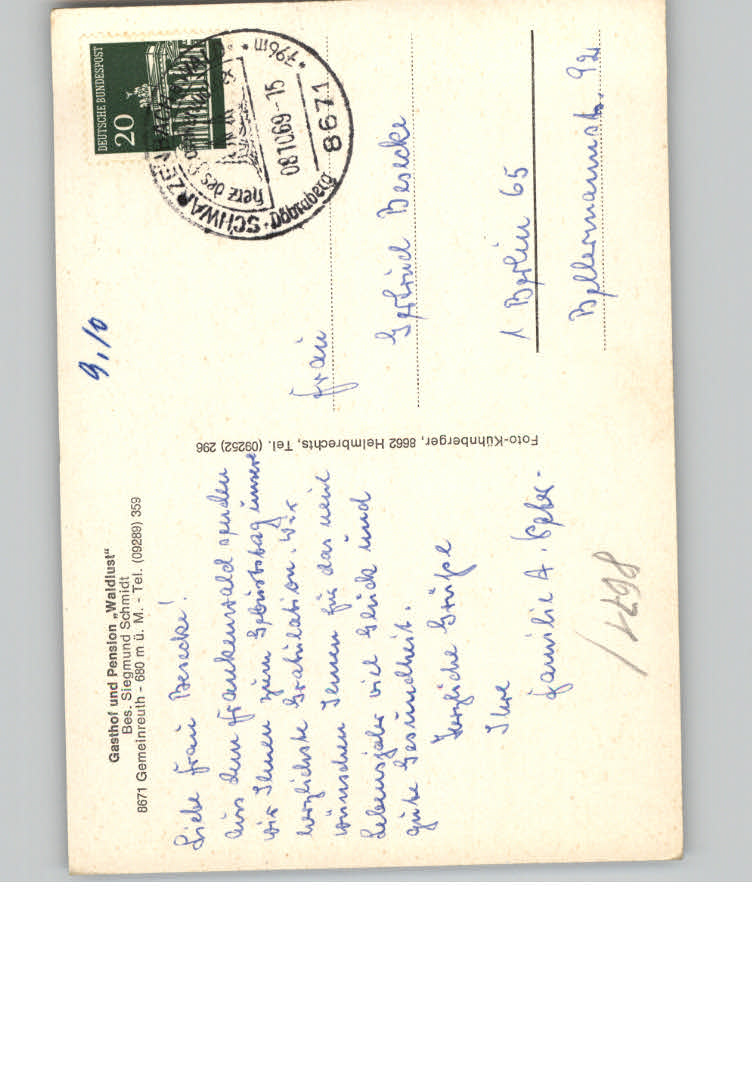 Gasthof und Pension „Waldlust"
Bes. Siegmund Schmidt
8671 Gemeinreuth - 680 m ü. M. - Tel. (09289) 359
9.10
Liebe Frau Besecke!
Aus dem Frankenwald senden
wir Ihnen zum Geburtstag unsere
herzlichste Gratulation. Wir
wünschen Ihnen für das neue
Lebensjahr viel Glück und
gute Gesundheit.
Herzliche Grüße
Ihre
Familie A.
Foto-Kühnberger, 8662 Helmbrechts, Tel. (09252) 296
DEUTSCHE BUNDESPOST
20
SCHWARZENBACH
Herz des
Döbraberg
*796m*
08.10.69-15
8671
Frau
Gertrud Besecke
1 Berlin 65
Bellermannstr. 92
8671